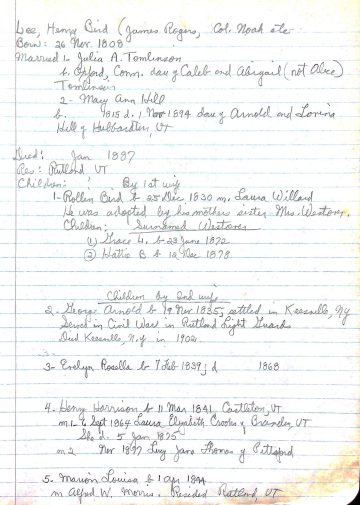 Lee, Henry Bird (James Rogers, Col. Noah etc
Born: 26 Nov. 1808
Married 1- Julia A. Tomlinson
b. Oxford, Conn. dau of Caleb and Abigail (not Olive)
Tomlinson
2- Mary Ann Hill
b. 1815 d. 1 Nov 1894 dau of Arnold and Lovina
Hill of Hubbardton, VT
Died: Jan 1887
Res: Rutland VT
Children: By 1st wife
1- Rollin Bird b 25 Dec 1830 m. Laura Willard
He was adopted by his mothers sister Mrs. Westover.
Children: Surnamed Westover
(1) Grace L. b 23 June 1872
(2) Hattie B b 12 Dec 1878
Children by 2nd wife
2- George Arnold b 19 Nov 1835, settled in Keeseville, NY
Served in Civil War in Rutland Light Guards
Died Keeseville, N.Y. in 1902
3- Evelyn Rosella b 7 Feb 1839, d 1868
4. Henry Harrison b 11 Mar 1841 Castleton, VT
m 1- 6 Sept 1864 Laura Elizabeth Crooks of Brandon, VT
She d. 5 Jan 1895
m 2 Nov 1897 Lucy Jane Thomas of Pittsford
5. Marion Louisa b 1 Apr 1844
m Alfred W. Morris. Resided Rutland, VT